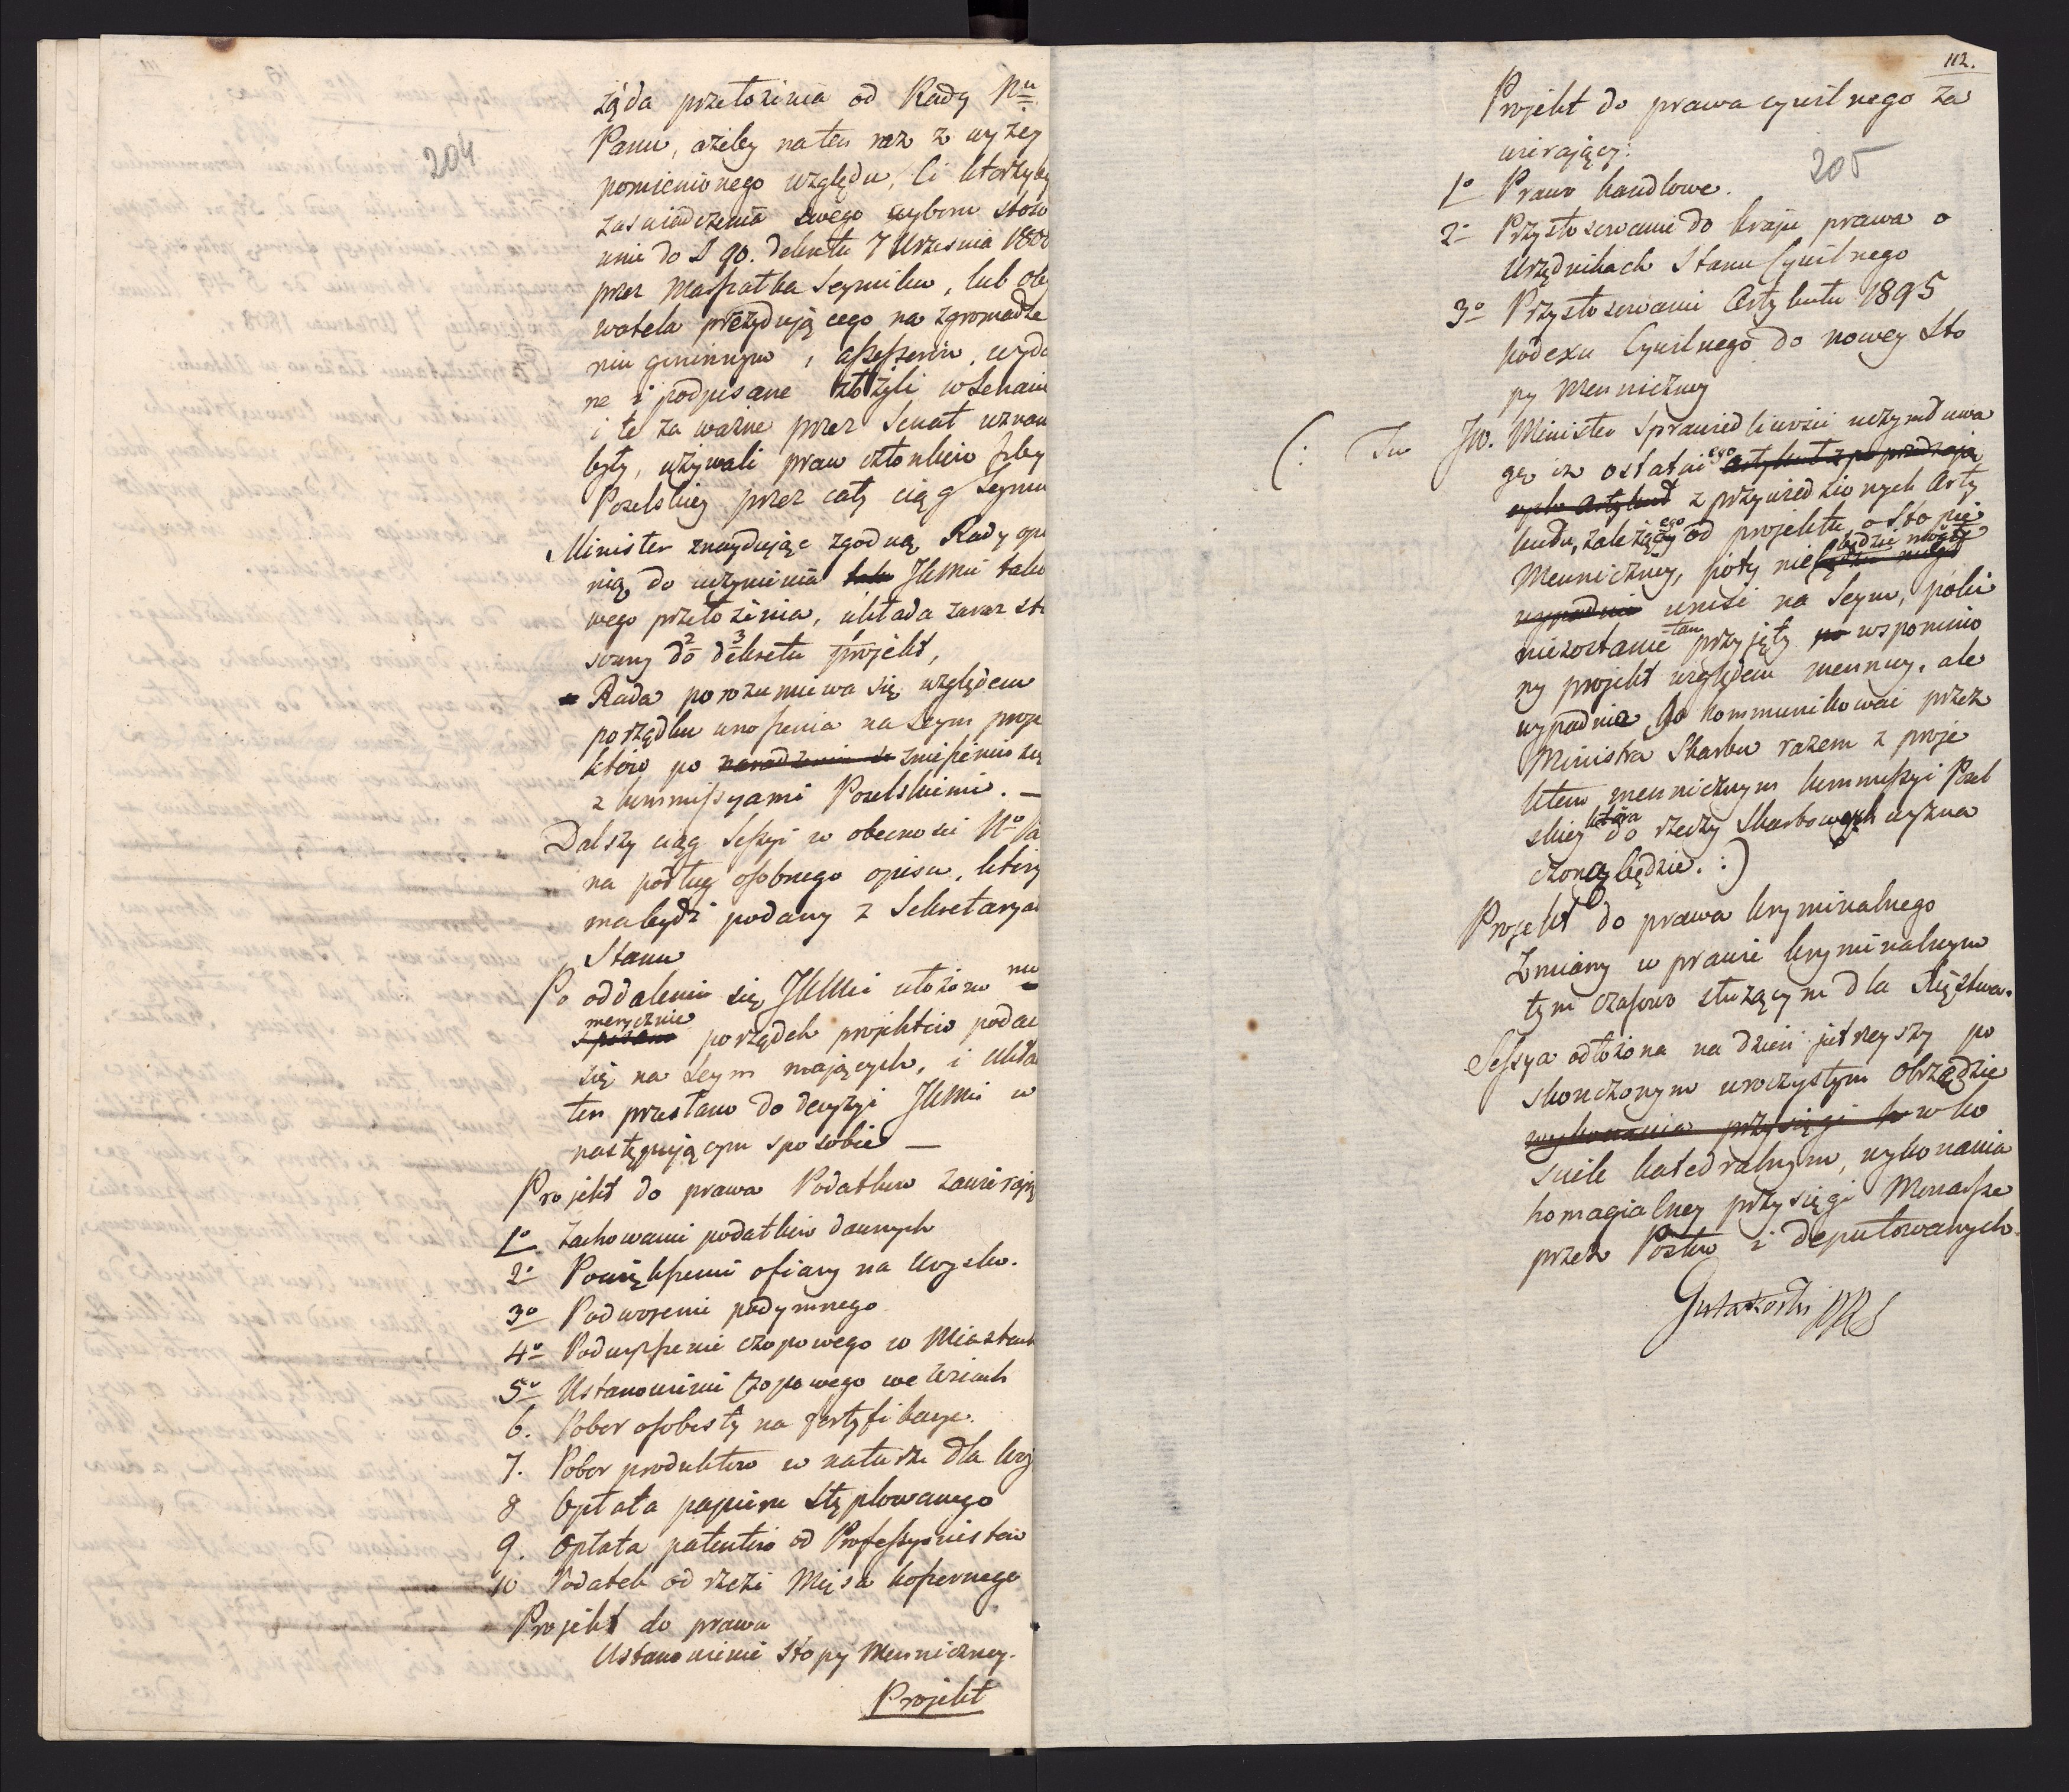 204
żąda przełożenia od Rady Nu
Panu, ażeby na ten raz z wyżey
pomienionego względu, Ci którzyby
zaświadczenia swego wyboru stoso
wnie do § 90. dekretu 7 Września 180
przez Marszałka Seymiku, lub oby
watela prezydującego na zgromadze
niu gminnym, assessorów, wyda
ne i podpisane złożyli w Senacie
i te za ważne przez Senat uznane
były, używali praw członków Izby
Poselskiey przez cały ciąg Seymu
Minister znayduiąc zgodną Rady opi
nią do uczynienia JKMci tako
wego przełożenia, układa zaraz sto
sowny do dekretu projekt,
Rada porozumiewa się względem
porządku wnoszenia na Seym proje
któw po zniesieniu się
z kommissyami Poselskiemi. —
Dalszy ciąg Sessyi w obecności No Pa
na podług osobnego opisu, który
ma bydź podany z Sekretaryat
Stanu
Po oddaleniu się JKMci ułożono nu
merycznie
porządek projektów podać
się na Seym mających, i układ
ten przesłano do decyzyi JKMci w
następującym sposobie —
Projekt do prawa Podatków zawierając
1o Zachowanie podatków dawnych
2o Powiększenie ofiary na Woysko.
3o Podwoienie podymnego
4o Podwyższenie czopowego w Miastach
5o Ustanowienie Czopowego we Wsiach
6. Pobor osobisty na fortyfikacye.
7. Pobor produktów w naturze dla Woj
8 Opłata papieru stęplowanego
9. Opłata patentów od Professyonistów
10 Podatek od rzezi Mięsa koszernego
Projekt do prawa
Ustanowienie Stopy Menniczney.
Projekt
112.
205
Projekt do prawa cywilnego za
wierający:
1o Prawo handlowe.
2o Przystosowanie do kraju prawa o
Urzędnikach Stanu Cywilnego
3o Przystosowanie Artykułu 1895
kodexu Cywilnego do nowey Sto
py Menniczney
(: Tu JW. Minister Sprawiedliwości uczynił uwa
gę iż ostatniego artykuł z poprzedzają
cych Artykuł z przywiedzionych Arty
kułu, zależącego od projektu o Stopie
Menniczney, póty nie będzie mógł
wnieść na Seym, póki
niezostanie tam przyjęty wspomnio
ny projekt względem mennicy, ale
wypadnie go kommunikować przez
Ministra Skarbu razem z proje
ktem menniczným kommissyi Posel
skiey która do rzeczy Skarbowych wyzna
czoną będzie. :)
Projekt do prawa kryminalnego
Zmiany w prawie kryminalnym
tymczasowo służącym dla Xięstwa.
Sessya odłożona na dzień jutrzeyszy po
skończonym uroczystym obrzędzie
wykonania przysięgi w ko
ściele katedralnym, wykonania
homagialney przysięgi Monarsze
przez Posłów i deputowanych.
Gutakowski PRS